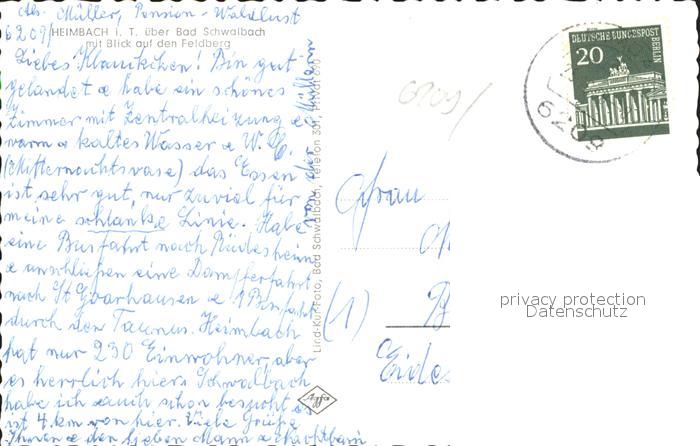 Abs. Müller, Pension-Waldlust
6209/ HEIMBACH i. T. über Bad Schwalbach
mit Blick auf den Feldberg
Liebes ! Bin gut
gelandet & habe ein schönes
Zimmer mit Zentralheizung &
warm & kaltes Wasser & W. C.
(Mitternachtsvase) das Essen
ist sehr gut, nur zuviel für
meine schlanke Linie. Habe
eine Busfahrt nach Rüdesheim
& anschließen eine Dampferfahrt
nach St Goarhausen & 1 Busfahrt
durch den Taunus. Heimbach
hat nur 230 Einwohner, aber
es herrlich hier. Schwalbach
habe ich auch schon besucht, es
ist 4 km von hier. Viele Grüße
Ihnen & der lieben Mann &
von der
Lind-Kur-Foto, Bad Schwalbach, Telefon
Agfa
6209/
DEUTSCHE BUNDESPOST
BERLIN
20
6208
Frau
(1) B
Eides
privacy protection
Datenschutz